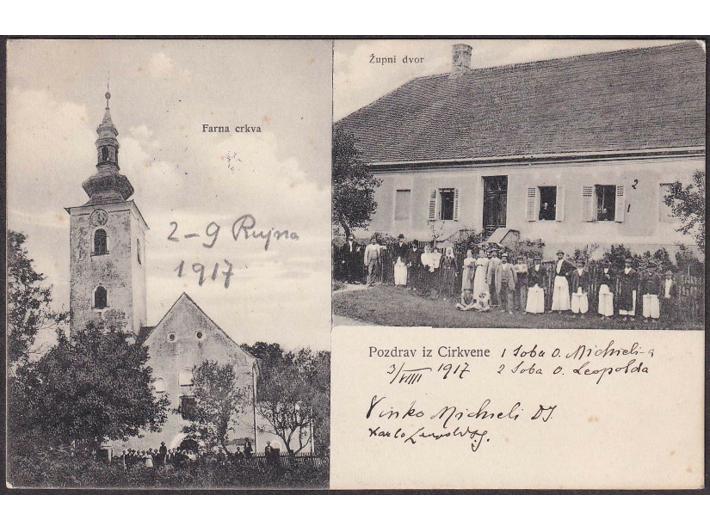 Farna crkva
2-9 Rujna
1917
Župni dvor
2
1
Pozdrav iz Cirkvene 1 Soba O. Michieli-a
3/VIII 1917 2 Soba O. Leopolda
Vinko Michieli DJ.
Karlo Leopold